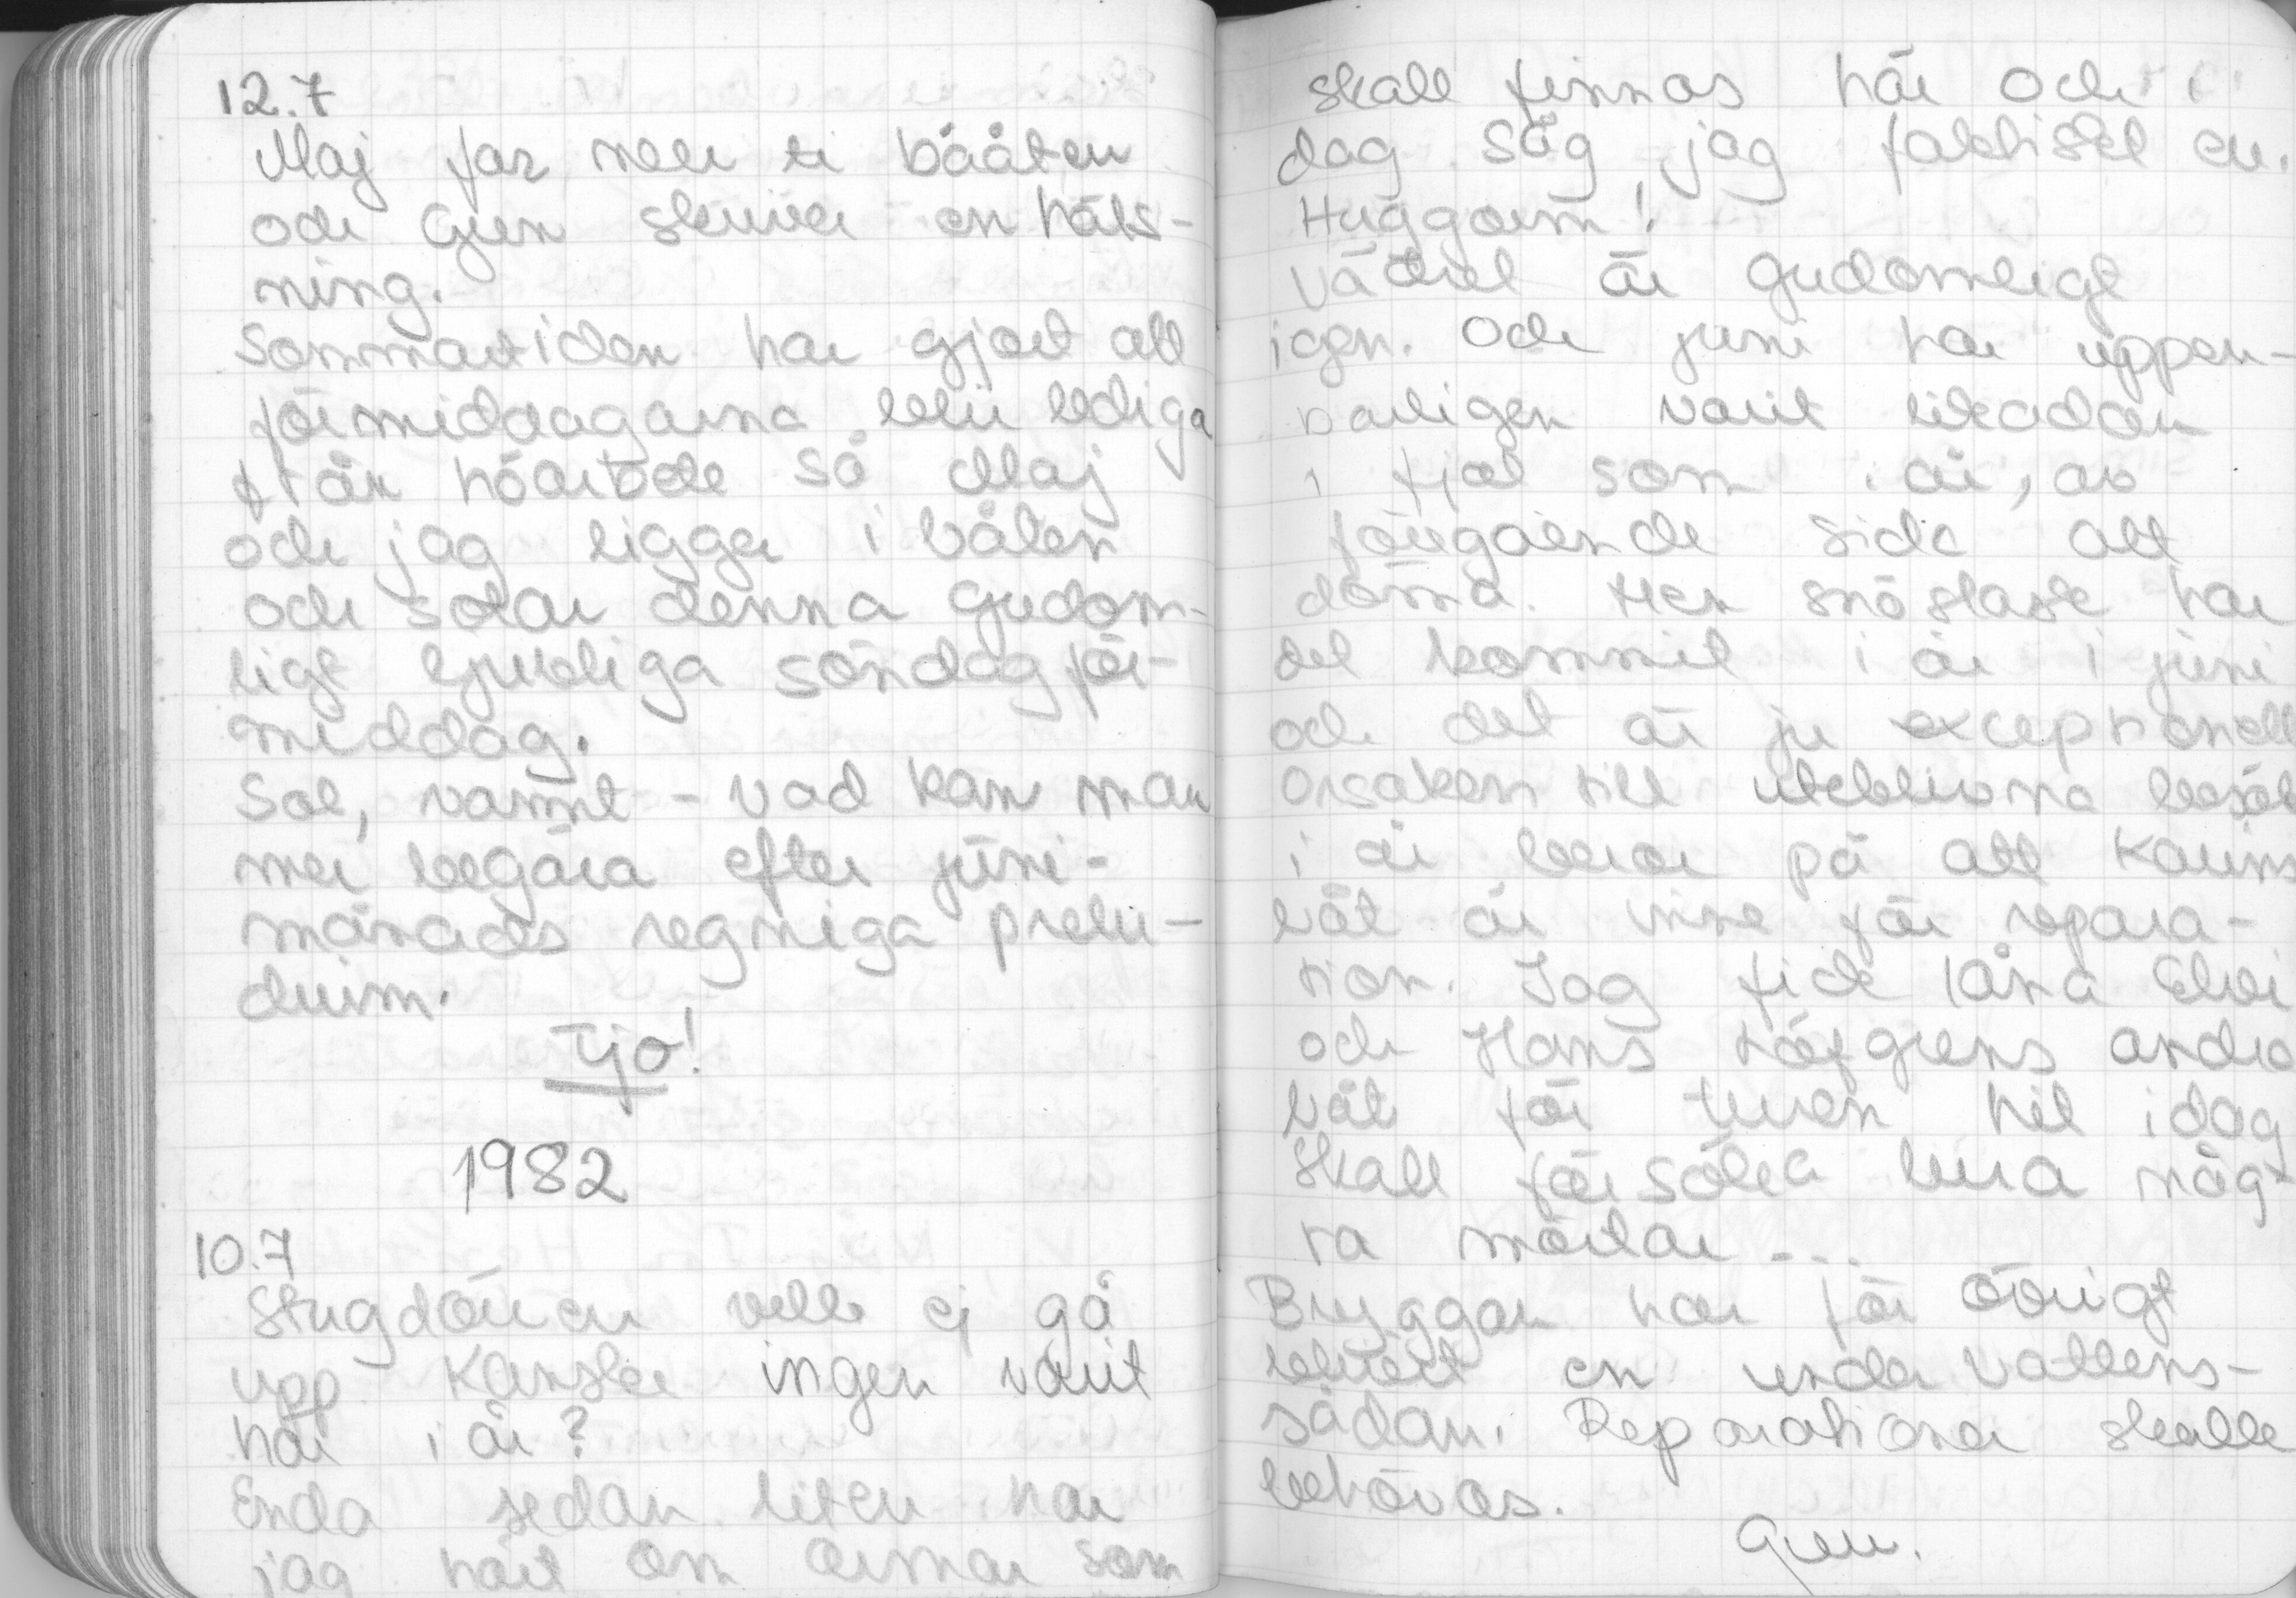 12.7
Maj far neer ti bååten
och Gun skriver en häls-
ning.
Sommartiden har gjort att
förmiddagarna blir lediga
från hårbete så Maj
och jag ligger i båten
och solar denna gudom-
ligt ljuvliga söndagför-
middag.
Sol, varmt - vad kan man
mer begära efter juni-
månads regniga prelu-
dium.
Tjo!
1982
10.7
Stugdörren ville ej gå
upp. Kanske ingen varit
här i år?
Enda sedan liten har
jag hört om ormar som
skall finnas här och i
dag såg jag faktiskt en.
Huggorm!
Vädret är gudomligt
igen. Och juni har uppen-
barligen varit likadan
i fjol som i år, av
föregående sida att
döma. Men snöslask har
det kommit i år i juni
och det är ju exceptionellt
Orsaken till uteblivna besök
i år beror på att Karins
båt är inne för repara-
tion. Jag fick låna Elvi
och Hans Löfgrens andra
båt för turen hit idag
Skall försöka lura någ-
ra mörtar ...
Bryggan har för övrigt
blivit en undervattens-
sådan. Reparationer skulle
behövas.
Gun.